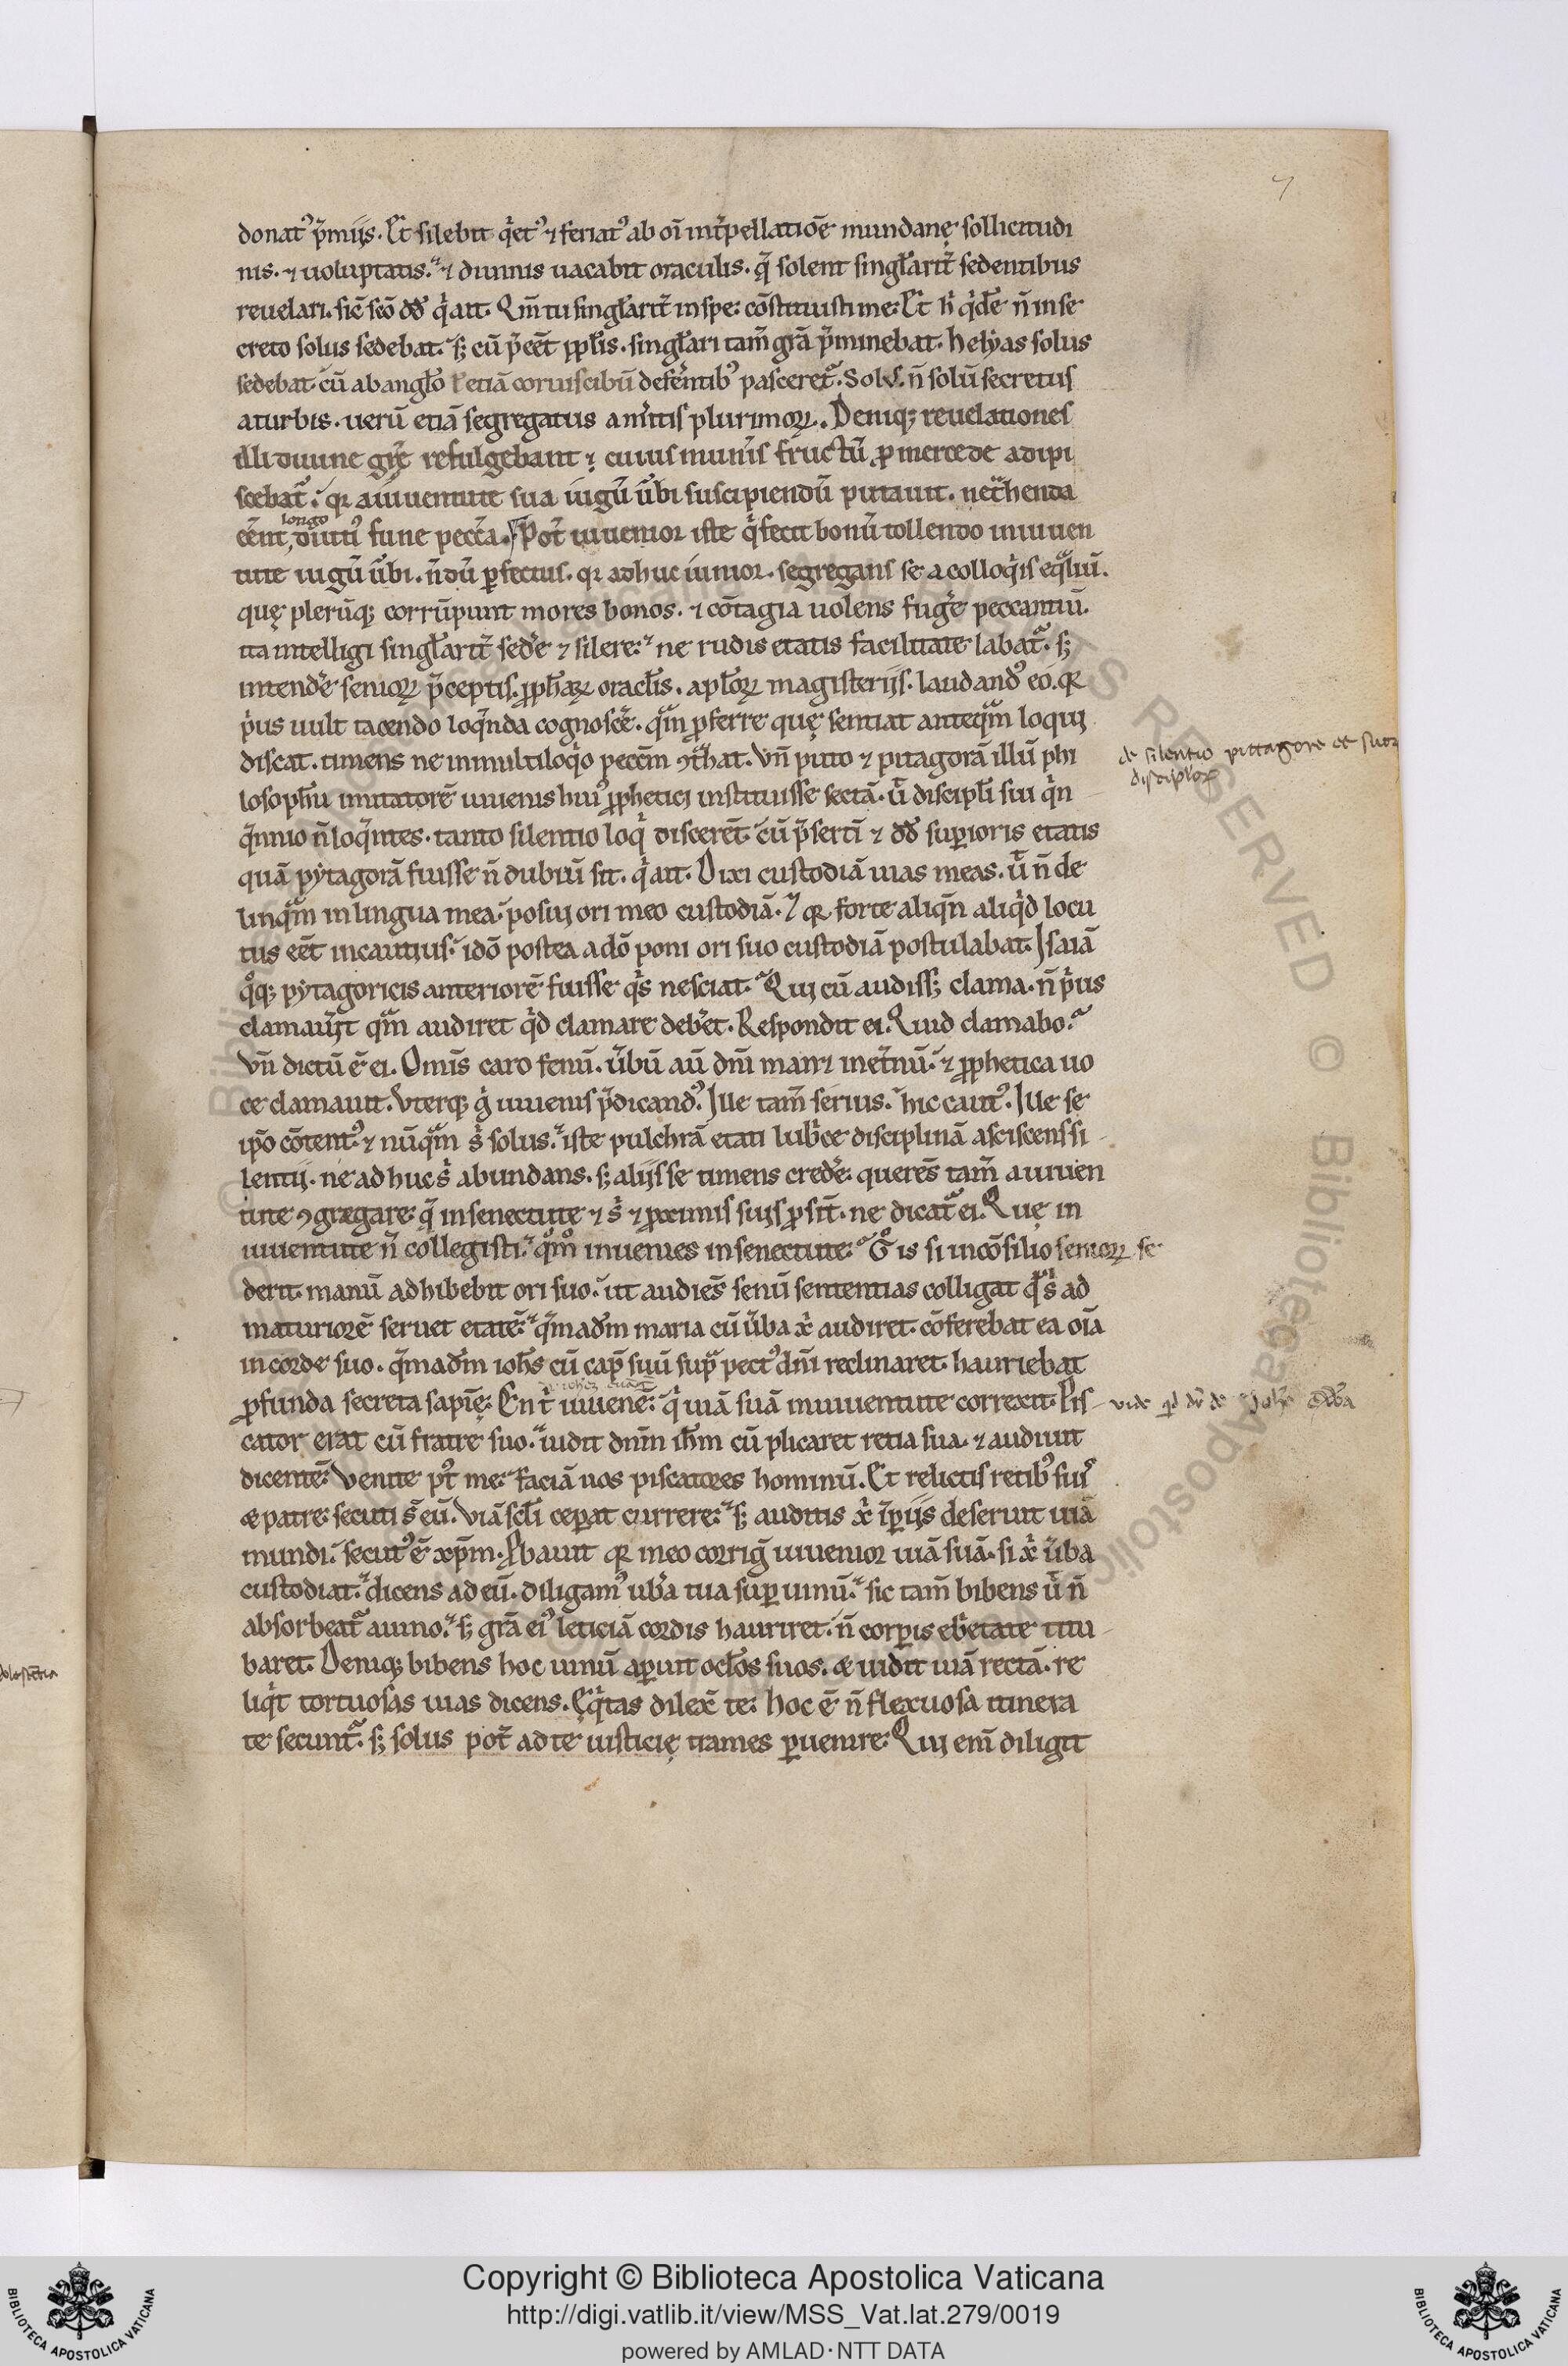 7
donat᷒ p̄mijs. Et silebit q̇et᷒ ⁊ feriat᷒ ab oı̄ int̄pellatiōe mundanę sollicitudi
nis. ⁊ uoluptatis. ⁊ diuinis uacabit oraculis. q̄ solent singl̄arit̄ sedentibus
reuelari. sic̄ sc̄o dd̄ q̇ ait. Qm̄ tu singl̄arit̄ in spe cōstituisti me. Et h̄ q̇dē n̄ in se
creto solus sedebat. sꝫ cū p̄eēt ppl̄is. singl̄ari tam̄ grā p̄minebat. helyas solus
sedebat cū ab angl̄o ł etiā coruis cibū defēntib᷒ pasceret᷑. Solus. n̄ solū secretus
a turbis. uerū etiā segregatus a m̄itis plurimoꝝ. Deniqꝫ reuelationes
illi diuine gr̄ę refulgebant ⁊ cuius mun̄is fructū ꝓ mercede adipi
scebat᷑. qꝛ a iuuentute sua iugū ūbi suscipiendū putauit. nec t̄henda
eēnt longo diuti᷒ fune pecc̄a. Pot̄ iuuenior iste q̇ fecit bonū tollendo in iuuen
tute iugū ūbi. n̄dū ꝑfectus. qꝛ adhuc iunior. segregans se a colloq̇is eq̄liū.
quę plerūqꝫ corrūpunt mores bonos. ⁊ cōtagia uolens fugēe peccantiū.
ita intelligi singl̄arit̄ sedēe ⁊ silere. ne rudis etatis facilitate labat᷑. sꝫ
intendēe senioꝝ p̄ceptis. ꝓph̄aꝝ oracl̄is. apl̄oꝝ magisterijs. laudand᷒ eo. qꝛ
p̓us uult tacendo loq̄nda cognoscēe. q̄m ꝓferre quę sentiat anteq̄m loqui
discat. timens ne in multiloq̇o pecc̄m ꝯt̄hat. Vn̄ puto ⁊ pitagorā illū phi
losoph̄u imitatorē iuuenis hui᷒ ꝓphetici instituisse sectā. ū discipl̄i sui q̇n
q̄nnio n̄ loq̄ntes. tanto silentio loq̇ discerēt. cū p̄sertī ⁊ dd̄ suꝑioris etatis
quā pytagorā fuisse n̄ dubiū sit. q̇ ait. Dixi custodiā uias meas. ū n̄ de
linq̄m in lingua mea. posui ori meo custodiā. ⁊ qꝛ forte aliq̄n aliq̇d locu
tus eēt incautius. idō postea a dō poni ori suo custodiā postulabat. Isaiā
q̊qꝫ pytagoricis anteriorē fuisse q̇s nesciat. Qui cū audissꝫ clama. n̄ p̓us
clamauit q̄m audiret q̇d clamare deb̄et. Respondit ei. Quid clamabo.
Vn̄ dictū ē ei. Omīs caro fenū. ūbū aū dnī man̄t inet̄nū. ⁊ ꝓphetica uo
ce clamauit. Vterqꝫ g̊ iuuenis p̄dicand᷒. Ille tam̄ serius. hic caut᷒. Ille se
ipō cōtent᷒ ⁊ nūq̄m s̄ solus. iste pulchrā etati lubr̄ce disciplinā asciscens si
lentij. ne adhuc s̄ abundans. sꝫ alijs se timens credēe. querēs tam̄ a iuuen
tute ꝯgregare q̄ in senectute ⁊ s̄ ⁊ ꝓximis suis ꝓsit̄. ne dicat᷑ ei. Quę in
iuuentute n̄ collegisti. q̊m̊ inuenies in senectute. G̊ is si in cōsilio senioꝝ se
derit. manū adhibebit ori suo. ut audiēs senū sententias colligat q̄s ad
maturiorē seruet etatē. q̄madm̄ maria cū ūba x̄ audiret. cōferebat ea oı̄a
in corde suo. q̄madm̄ ioh̄s cū cap̄ suū sup̄ pect᷒ dn̄i reclinaret. hauriebat
ꝓfunda secreta sapię. En t̄ iuuenē. q̇ uiā suā in iuuentute correxit. Pis
cator erat cū fratre suo. uidit dnm̄ ih̄m cū plicaret retia sua. ⁊ audiuit
dicentē. Venite pt̄ me. faciā uos piscatores hominū. Et relictis retib᷒ suis
& patre secuti s̄ eū. Viā scl̄i ceꝑat currere. sꝫ auditis x̄ īꝑijs deseruit uiā
mundi. secut᷒ ē xp̄m. Ꝓbauit qꝛ in eo corriḡ iuuenior uiā suā. si x̄ ūba
custodiat. dicens ad eū. diligam᷒ ub̄a tua suꝑ uinū. sic tam̄ bibens ū n̄
absorbeat᷑ a uino. sꝫ grā ei᷒ leticiā cordis hauriret. n̄ corꝑis eb̄etate titu
baret. Deniqꝫ bibens hoc uinū aꝑuit ocl̄os suos. & uidit uiā rectā. re
liq̇t tortuosas uias dicens. Eq̇tas dilex̄ te. hoc ē n̄ flexuosa itinera
te secunt᷑. sꝫ solus pot̄ ad te iusticię trames ꝑuenire. Qui enı̄ diligit
de silentio pittagore et suoꝝ
discipl̄oꝝ
Copyright © Biblioteca Apostolica Vaticana
http://digi.vatlib.it/view/MSS_Vat.lat.279/0019
powered by AMLAD·NTT DATA
BIBLIOTECA APOSTOLICA VATICANA
BIBLIOTECA APOSTOLICA VATICANA